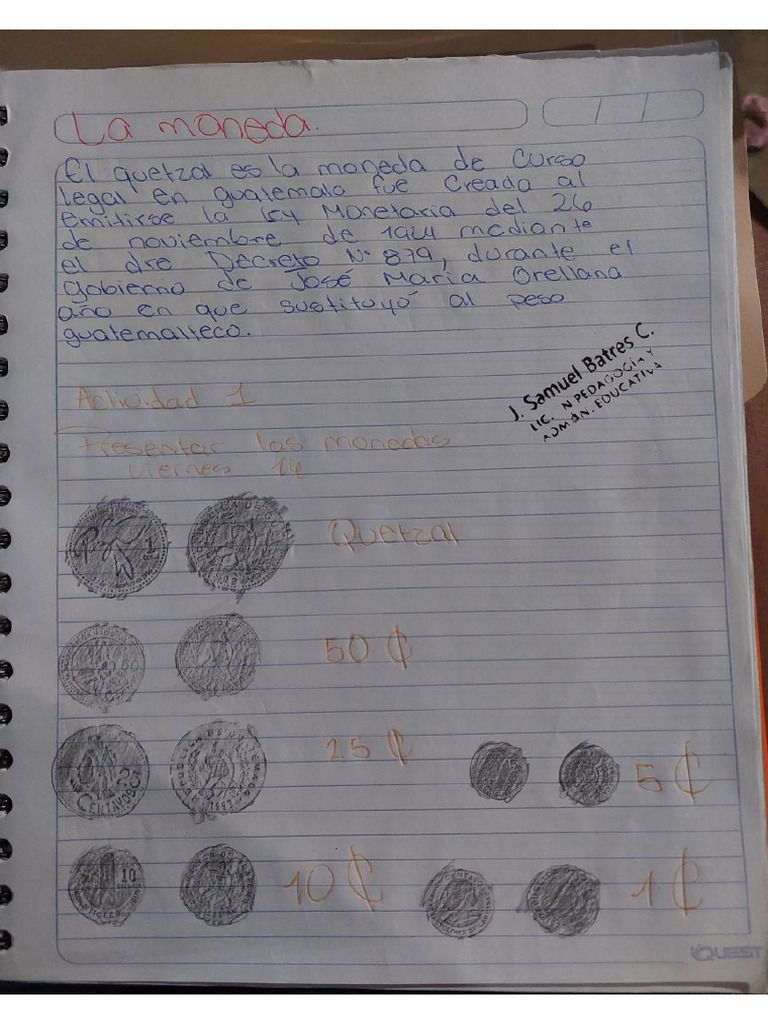 La moneda.
El quetzal es la moneda de Curso
legal en guatemala fue Creada al
emitirse la ley Monetaria del 26
de noviembre de 1924 mediante
el dre Decreto N° 879, durante el
gobierno de José María Orellana
año en que sustituyó al peso
guatemalteco.
J. Samuel Batres C.
LIC. N PEDAGOGIA Y
ADMÓN. EDUCATIVA
Actividad 1
Presentar las monedas
viernes 14
1
Quetzal
50
50 ₵
25
CENTAVOS
25 ₵
5 ₵
10
10 ₵
1 ₵
QUEST